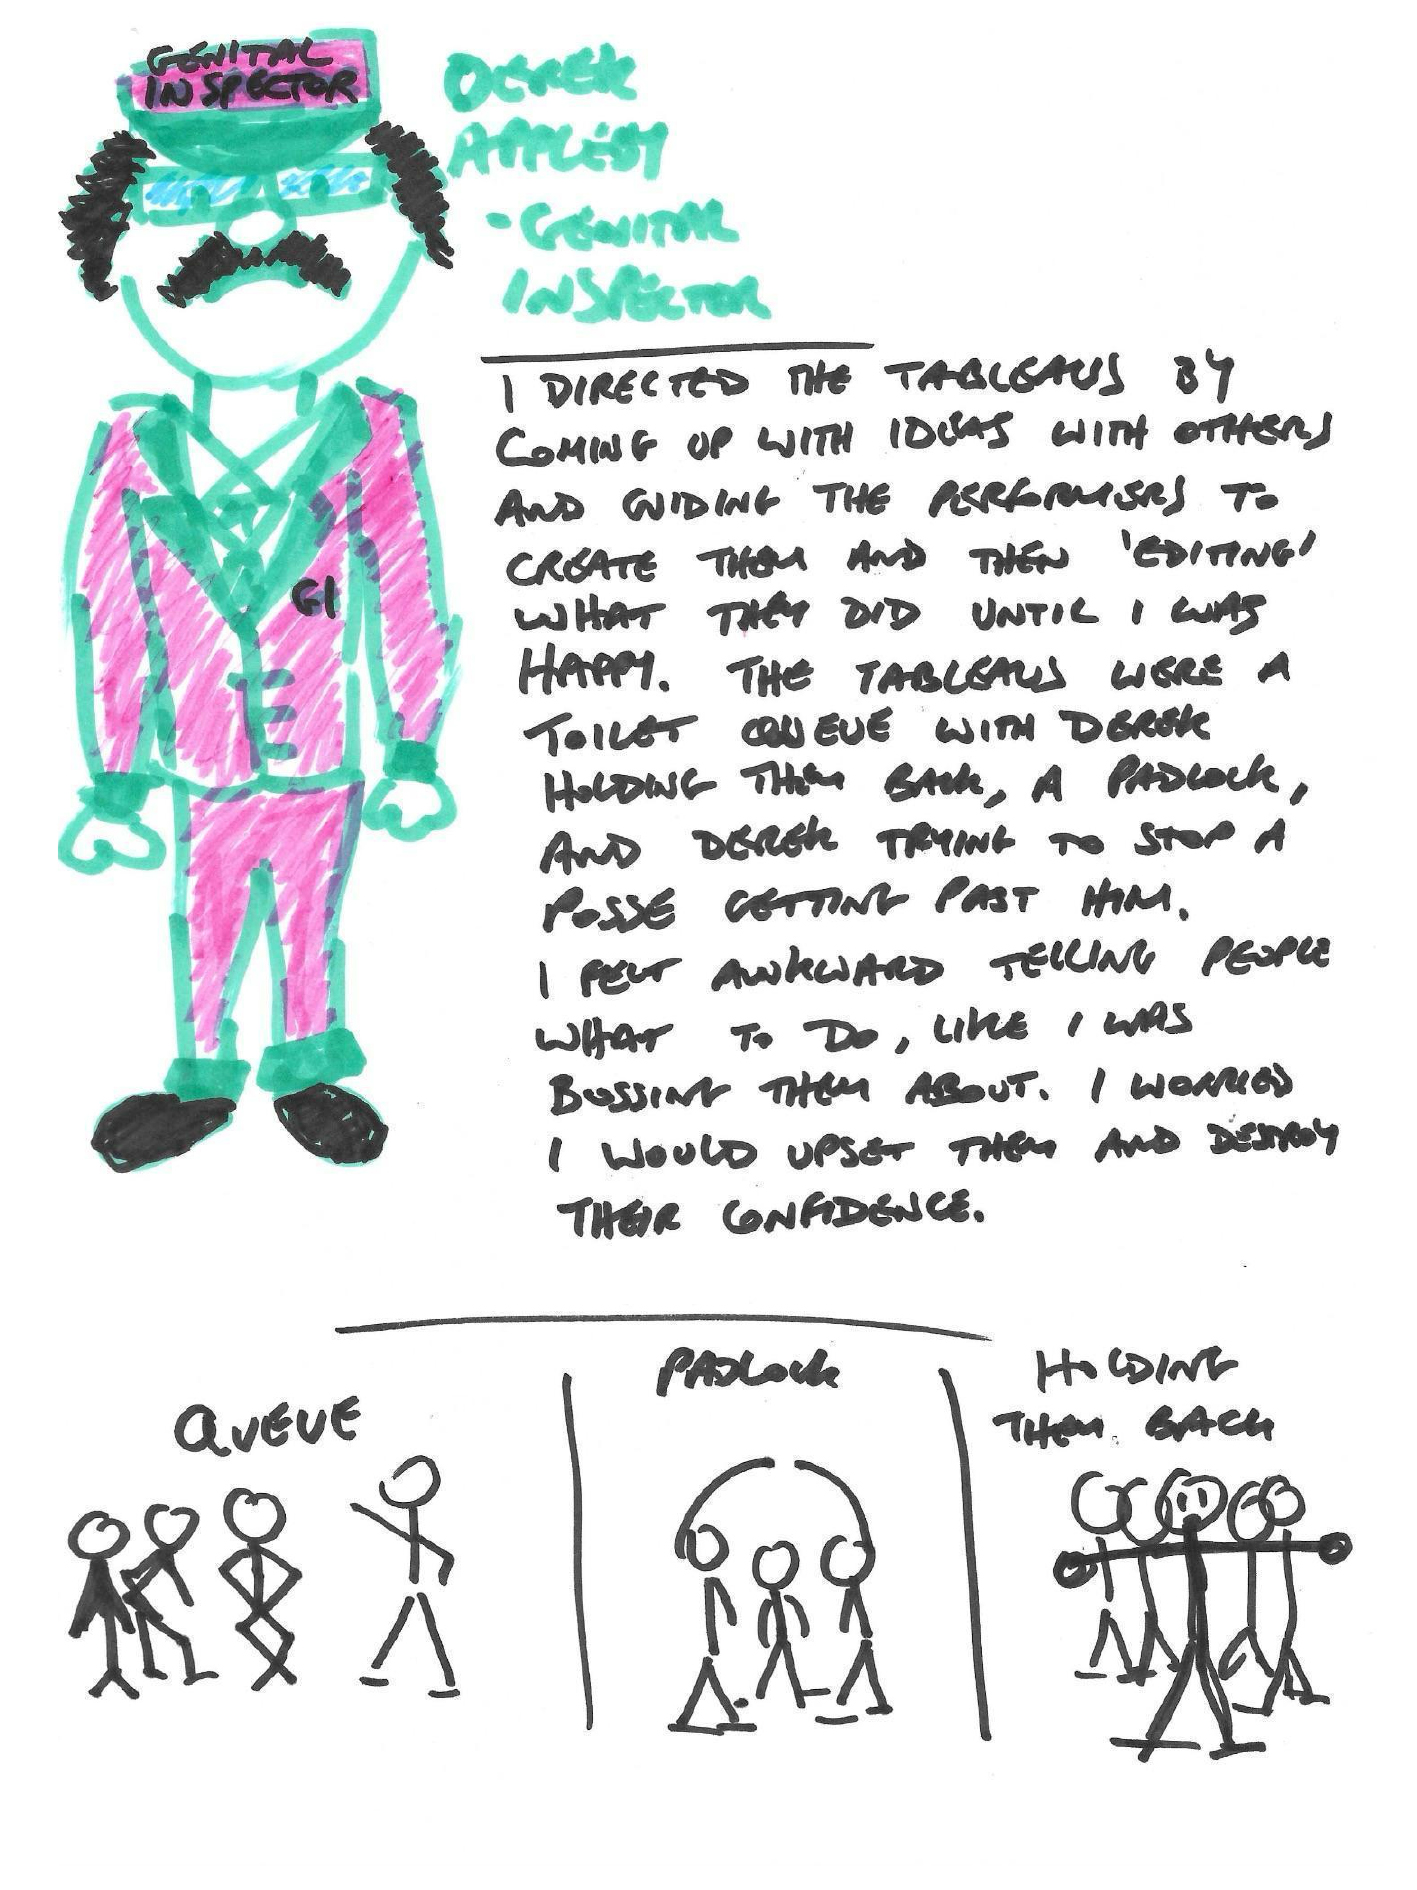 GENITAL
INSPECTOR
DEREK
APPLEBY
- GENITAL
INSPECTOR
I DIRECTED THE TABLEAUS BY
COMING UP WITH IDEAS WITH OTHERS
AND GUIDING THE PERFORMERS TO
CREATE THEM AND THEN 'EDITING'
WHAT THEY DID UNTIL I WAS
HAPPY. THE TABLEAUS WERE A
TOILET QUEUE WITH DEREK
HOLDING THEM BACK, A PADLOCK,
AND DEREK TRYING TO STOP A
POSSE GETTING PAST HIM.
I FELT AWKWARD TELLING PEOPLE
WHAT TO DO, LIKE I WAS
BOSSING THEM ABOUT. I WORRIED
I WOULD UPSET THEM AND DESTROY
THEIR CONFIDENCE.
GI
QUEUE
PADLOCK
HOLDING
THEM BACK